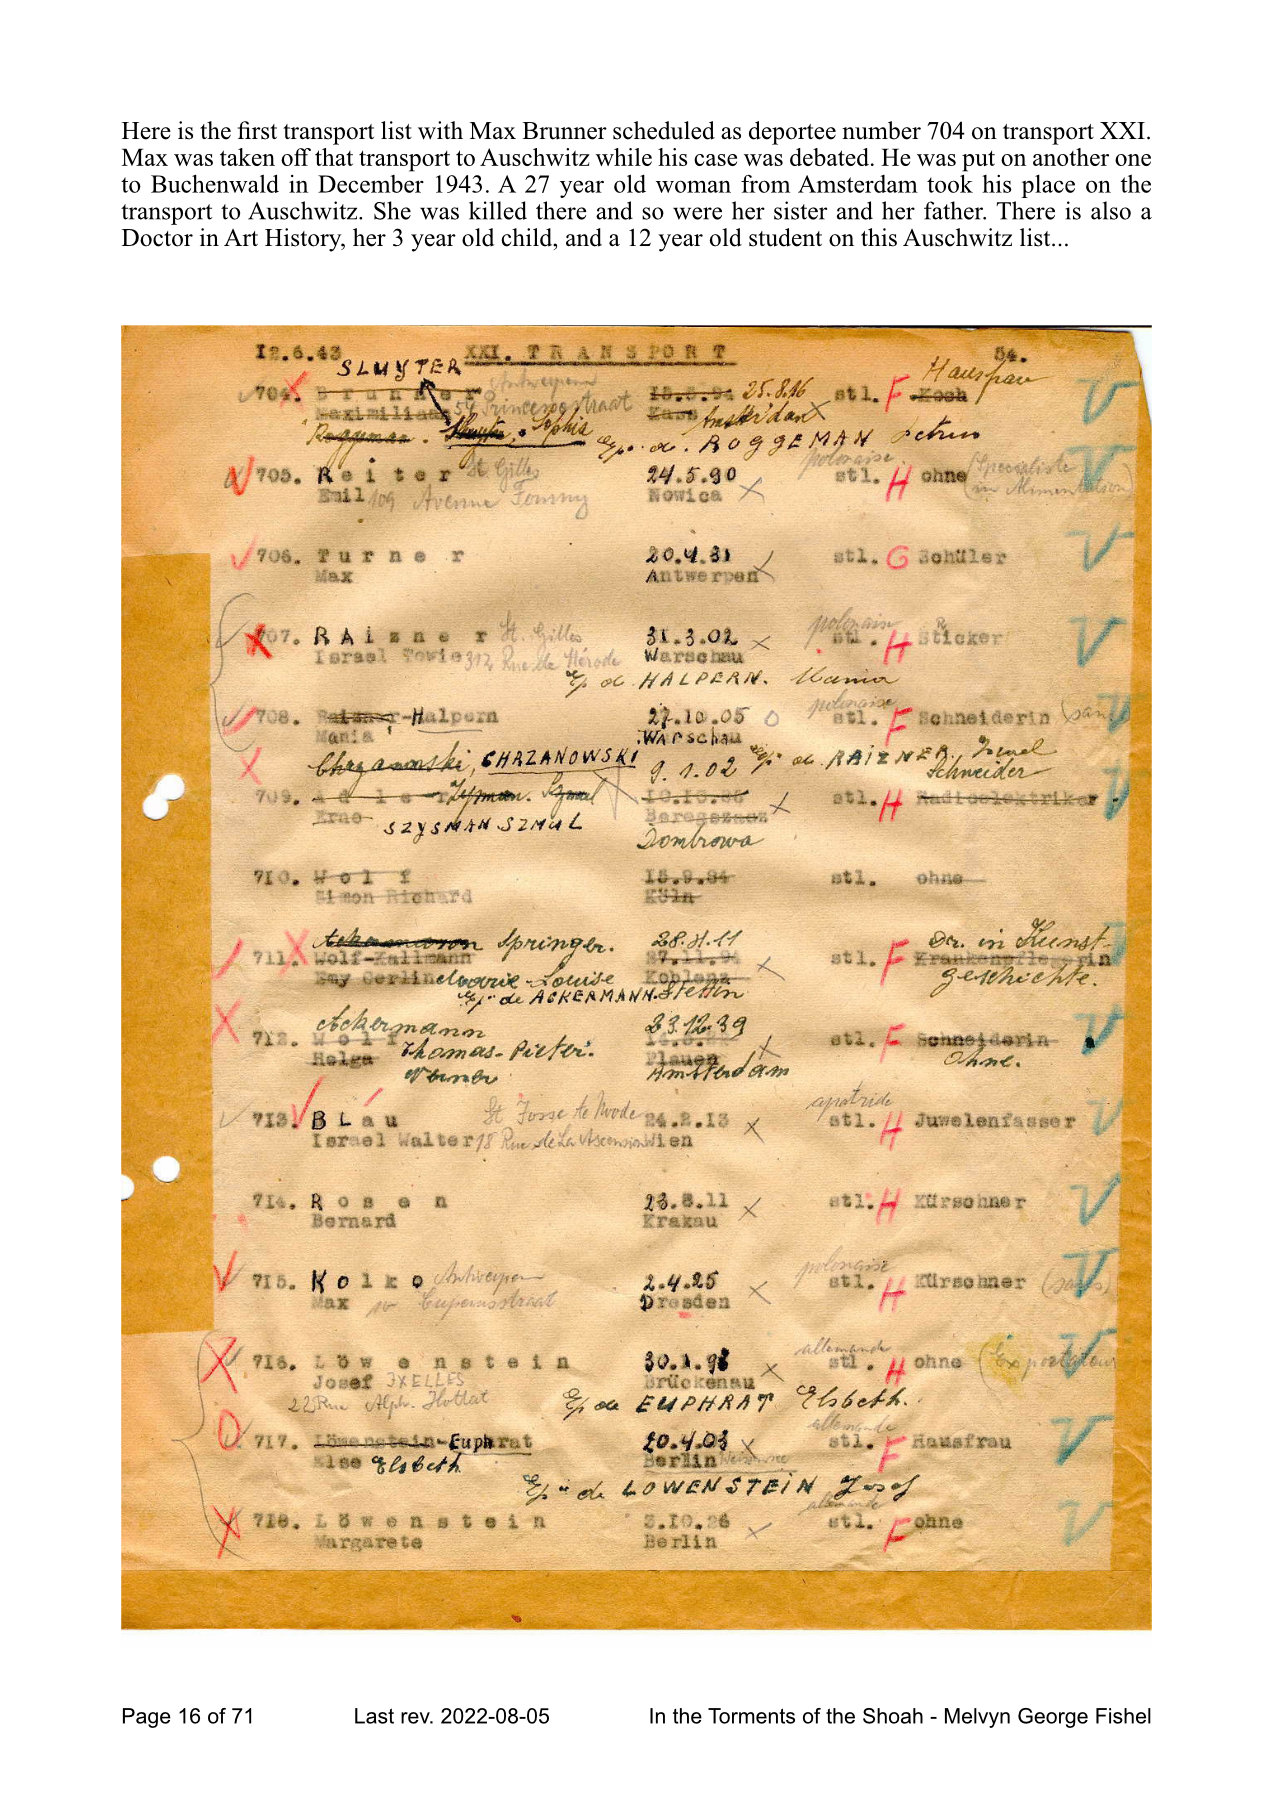 Here is the first transport list with Max Brunner scheduled as deportee number 704 on transport XXI.
Max was taken off that transport to Auschwitz while his case was debated. He was put on another one
to Buchenwald in December 1943. A 27 year old woman from Amsterdam took his place on the
transport to Auschwitz. She was killed there and so were her sister and her father. There is also a
Doctor in Art History, her 3 year old child, and a 12 year old student on this Auschwitz list...
I2.6.43 XXI. TRANSPORT 54.
SLUYTER Hausfrau
704. Brunner Antwerpen 25.8.16 stl. F Koch
Maximiliaan 54 Amsterdam
Sophia ROGGEMAN
polonaise
705. Reiter St Gilles 24.5.90 stl. H ohne (Specialiste
Emil 109 Avenue Nowica
706. Turner 20.4.31 stl. G Schüler
Max Antwerpen
polonais
707. RAizner St. Gilles 31.3.02 stl. H Sticker
Israel Towie 312 Rue de Mérode Warschau
Ep de HALPERN. Mania
polonaise
708. Raizner-Halpern 27.10.05 stl. F Schneiderin (sans
Mania Warschau
Chrzanowski, CHRZANOWSKI 9.1.02 de RAiZNER, Israel
Schneider
709. Adler Szmul stl. H Radioelektriker
Erno SZYSMAN SZMUL
Dombrowa
710. Wolf 15.9.84 stl. ohne
Simon Richard Köln
Springer. 28.8.11 Dr. in Kunst-
711. Wolf-Kallmann 27.11.94 stl. F Krankenpflegerin
Emy Gerline Marie-Louise Koblenz geschichte.
Ep. de ACKERMANN. Stettin
Ackermann 23.12.39
712. Wolf stl. F Schneiderin
Helga Thomas-Pieter. Plauen Ohne.
Werner Amsterdam
apatride
713. BLau St Josse te Noode 24.2.13 stl. H Juwelenfasser
Israel Walter 18 Rue de La Ascension Wien
714. Rosen 23.8.11 stl. H Kürschner
Bernard Krakau
polonaise
715. Kolko Antwerpen 2.4.25 stl. H Kürschner (sans)
Max Dresden
allemande
716. Löwenstein 30.1.98 stl. H ohne (Exportateur
Josef IXELLES Brückenau
22 Rue Alph. Hottat Ep de EUPHRAT Elsbeth.
allemande
717. Löwenstein-Euphrat 20.4.03 stl. F Hausfrau
Else Elsbeth Berlin
Ep de LOWENSTEIN Josef
allemande
718. Löwenstein 3.10.26 stl. F ohne
Margarete Berlin
Page 16 of 71 Last rev. 2022-08-05 In the Torments of the Shoah - Melvyn George Fishel